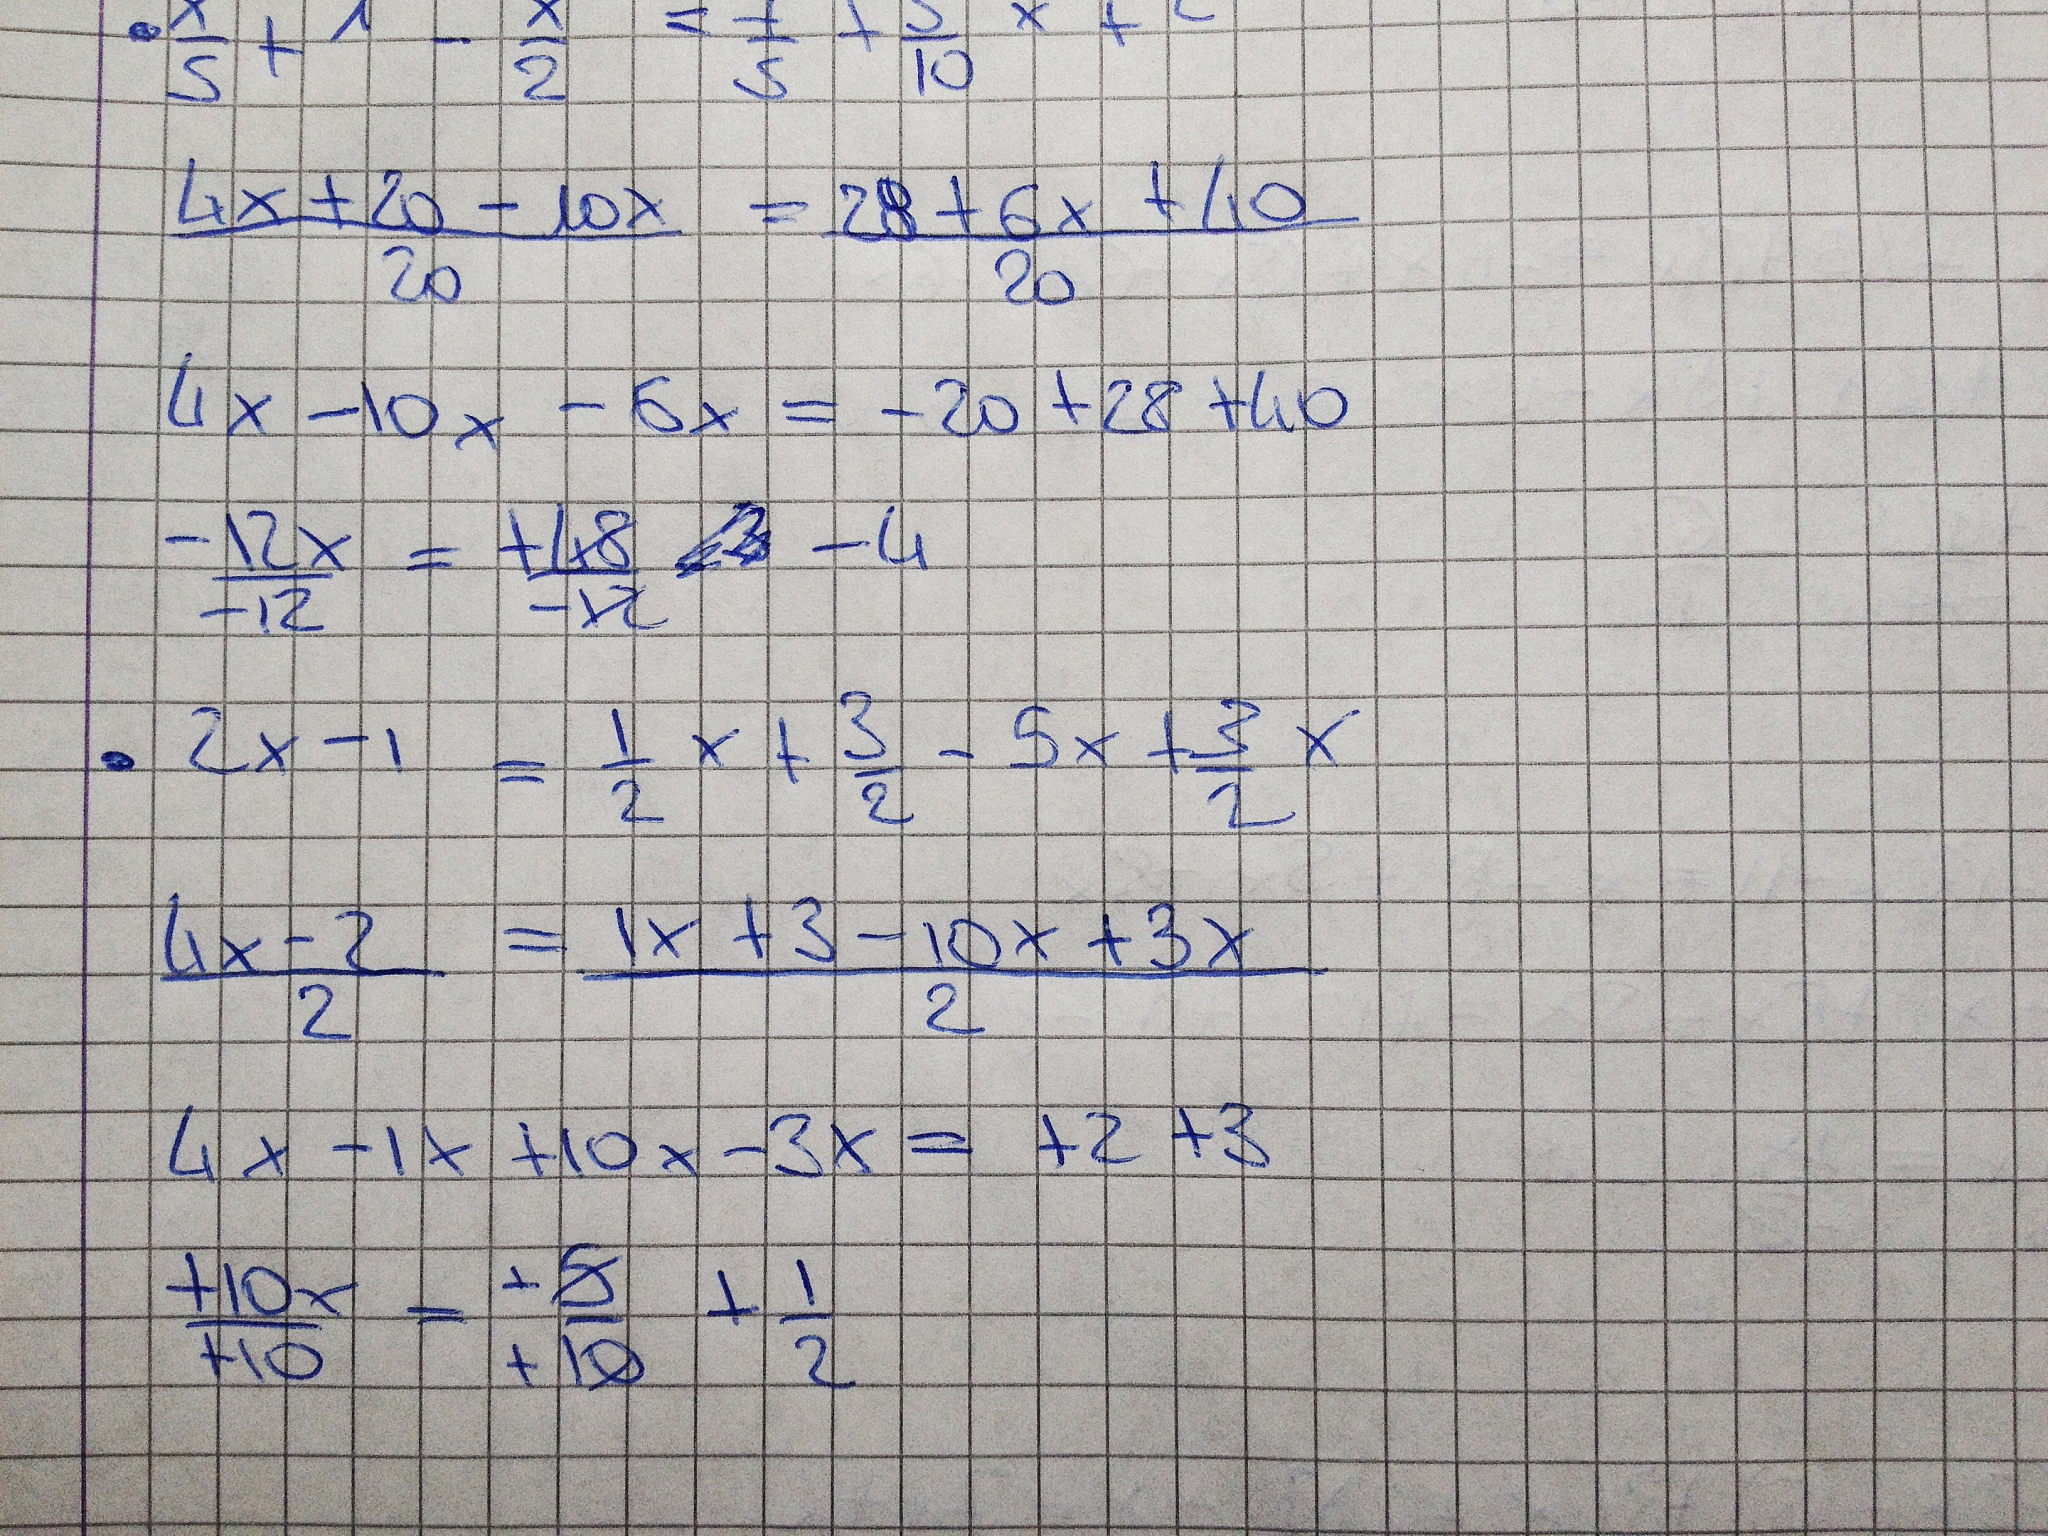 • x/5 + 1 - x/2 = 7/5 + 3/10 x + 2
4x + 20 - 10x / 20 = 28 + 6x + 40 / 20
4x - 10x - 6x = - 20 + 28 + 40
-12x / -12 = +48 / -12 - 4
• 2x - 1 = 1/2 x + 3/2 - 5x + 3/2 x
4x - 2 / 2 = 1x + 3 - 10x + 3x / 2
4x - 1x + 10x - 3x = +2 + 3
+10x / +10 = +5 / +10 + 1/2